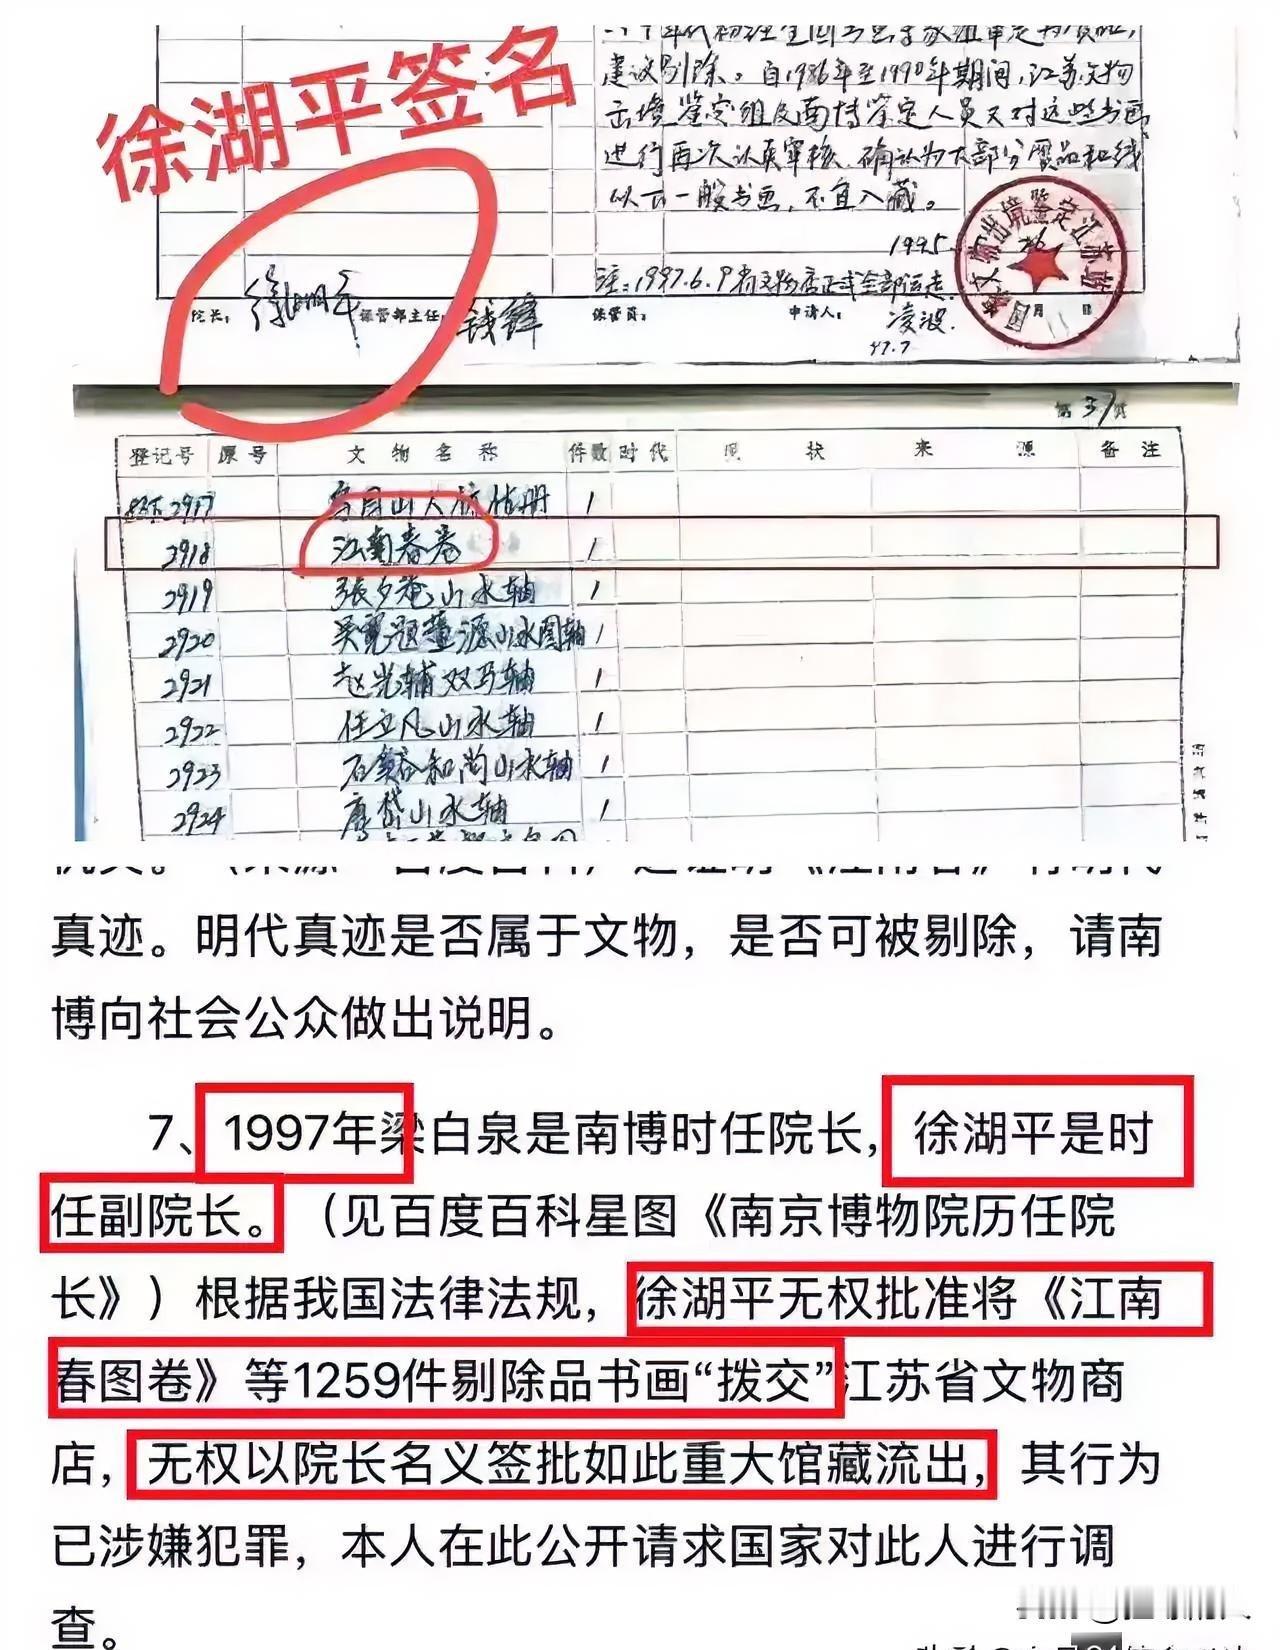 徐湖平签名
建议剔除。自1986年至1990年期间,江苏文物
出境鉴定组及南博鉴定人员又对这些书画
进行再次认真审核,确认为大部分赝品和线
以下一般书画,不宜入藏。
1995.
注:1997.6.9
院长: 徐湖平 保管部主任: 钱锋 保管员: 申请人: 凌波.
97.7
第37页
登记号 原号 文物名称 件数 时代 现状 来源 备注
2917 1
2918 江南春卷 1
2919 張夕菴山水轴 1
2920 吴寛題董源山水图轴 1
2921 赵光辅双马轴 1
2922 任立凡山水轴 1
2923 石溪和尚山水轴 1
2924 唐岱山水轴 1
真迹。明代真迹是否属于文物，是否可被剔除，请南
博向社会公众做出说明。
7、1997年梁白泉是南博时任院长，徐湖平是时
任副院长。（见百度百科星图《南京博物院历任院
长》）根据我国法律法规，徐湖平无权批准将《江南
春图卷》等1259件剔除品书画“拨交”江苏省文物商
店，无权以院长名义签批如此重大馆藏流出，其行为
已涉嫌犯罪，本人在此公开请求国家对此人进行调
查。